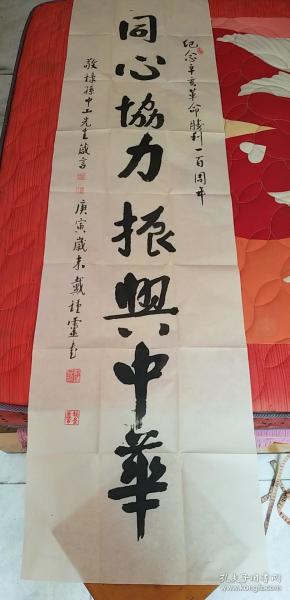 紀念辛亥革命勝利一百周年
同心協力振興中華
敬錄孫中山先生箴言
庚寅歲末戴
孔夫子旧书网
www.kongfz.com